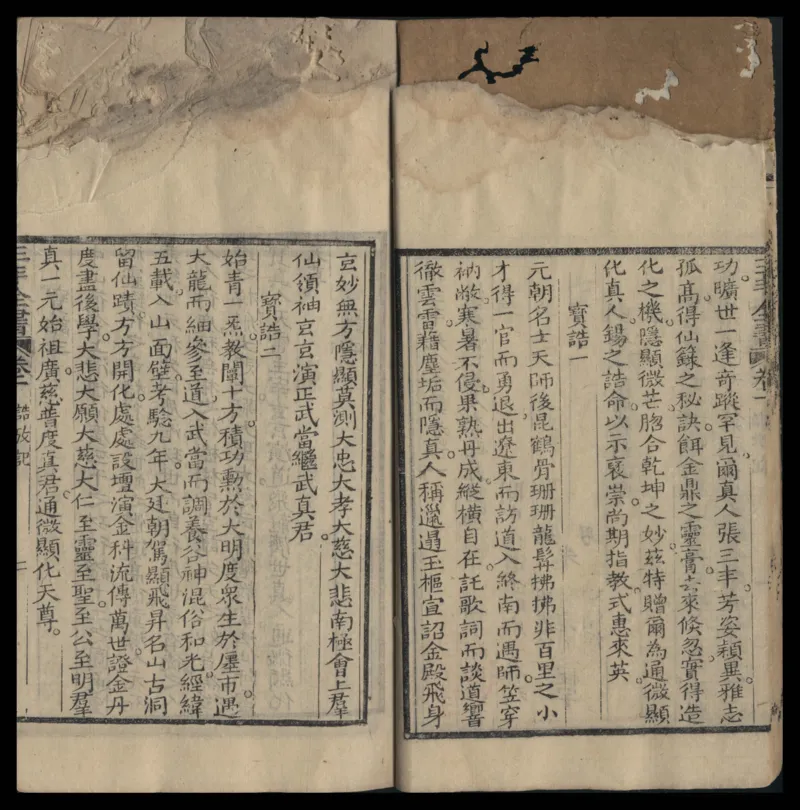 三丰全書 卷一
功曠世一逢奇蹤罕見爾真人張三丰芳姿穎異雅志
孤高得仙籙之秘訣餌金鼎之靈膏去來倏忽實得造
化之機隱顯微茫脗合乾坤之妙茲特贈爾為通微顯
化真人錫之誥命以示褒崇尚期指教式惠來英
寶誥一
元朝名士天師後昆鶴骨珊珊龍髯拂拂非百里之小
才得一官而勇退出遼東而訪道入終南而遇師笠穿
衲敝寒暑不侵果熟丹成縱橫自在託歌詞而談道響
徹雲霄藉塵垢而隱真人稱邋遢玉樞宣詔金殿飛身
玄妙無方隱顯莫測大忠大孝大慈大悲南極會上羣
仙領袖玄玄演正武當繼武真君
寶誥二
始青一炁教闡十方積功勲於大明度衆生於廛市遇
大龍而細參至道入武當而調養谷神混俗和光經緯
五載入山面壁考驗九年大廷朝駕顯飛昇名山古洞
留仙蹟方方開化處處設壇演金科流傳萬世證金丹
度盡後學大悲大願大慈大仁至靈至聖至公至明羣
真一元始祖廣慈普度真君通微顯化天尊
三丰全書 卷一 誥敕記